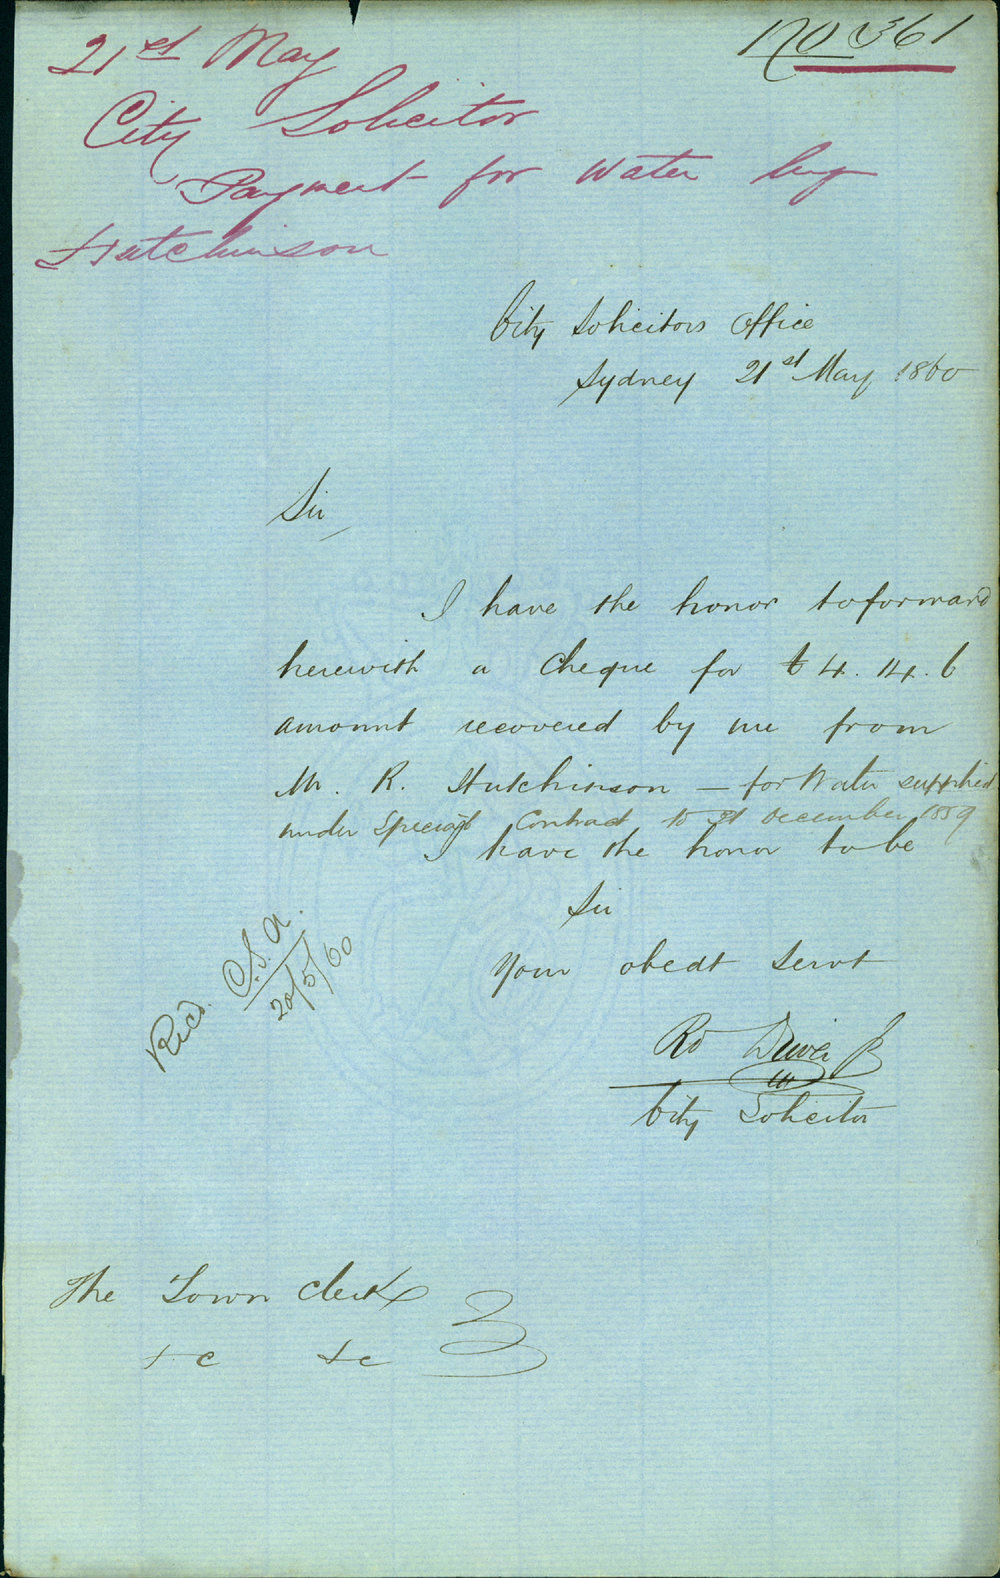 No 361
21st May
City Solicitor
Payment for Water by
Hutchinson
City Solicitors Office
Sydney 21st May 1860
Sir
I have the honor to forward
herewith a Cheque for £4.14.6
amount recovered by me from
Mr. R. Hutchinson — for Water supplied
under Special Contract to 31 December 1859
I have the honor to be
Sir
Your obedt Servt
Rd Driver Jr
City Solicitor
Recd.
20/5/60
The Town Clerk
&c &c